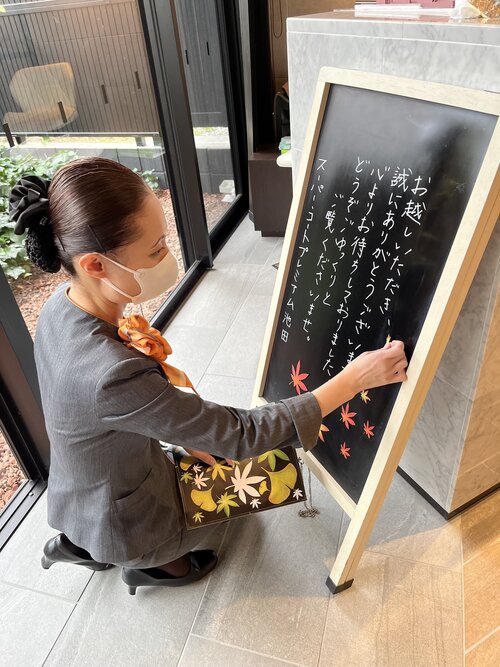 お越しいただき
誠にありがとうございま
心よりお待ちしておりました
どうぞごゆっくりと
ご覧くださいませ。
スーパーコートプレミアム池田